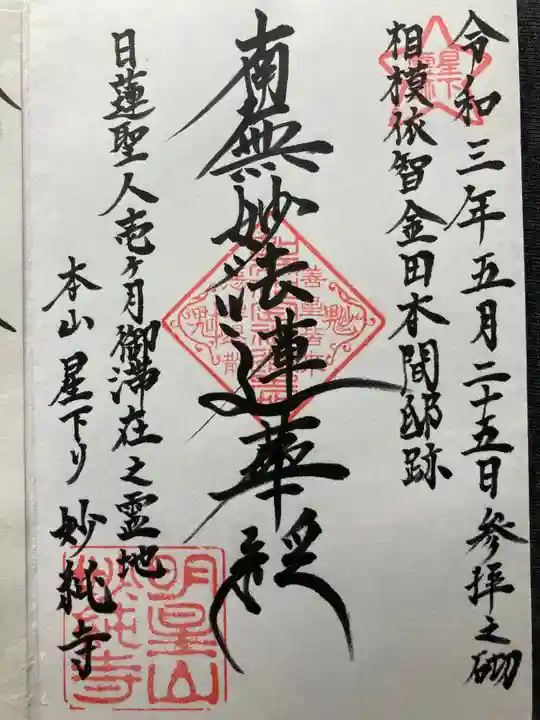 令和三年五月二十五日参拝之砌
相模依智金田本間邸跡
南無妙法蓮華経
日蓮聖人壱ヶ月御滞在之霊地
本山星下り妙純寺
星下
明星山
妙純寺